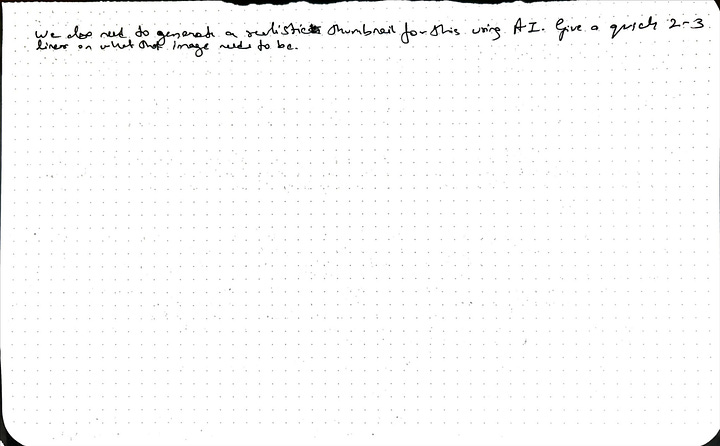 We also need to generate a realistic thumbnail for this using AI. Give a quick 2-3
liner on what that image needs to be.